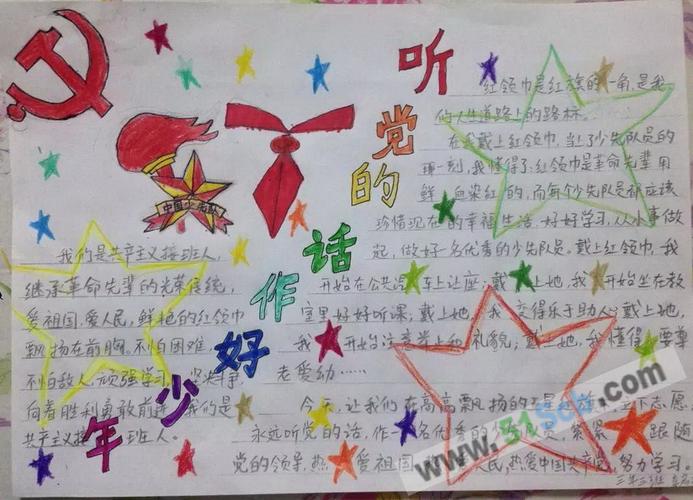 听党的话作好少年
中国少先队
我们是共产主义接班人,
继承革命先辈的光荣传统,
爱祖国,爱人民,鲜艳的红领巾
飘扬在前胸,不怕困难
不怕敌人,顽强学习,坚决斗争
向着胜利勇敢前进,我们是
共产主义接班人。
红领巾是红旗的一角,是我
们人生道路上的路标。
在我戴上红领巾,当了少先队员的
那一刻,我懂得了:红领巾是革命先辈用
鲜血染红的,而每个少先队员都应该
珍惜现在的幸福生活,好好学习,从小事做
起,做好一名优秀的少先队员。戴上红领巾,我
开始在公共汽车上让座;戴上她,我开始坐在教
室里好好听课;戴上她,我变得乐于助人;戴上她,
我开始注意举止和礼貌;戴上她,我懂得要尊
老爱幼……
今天,让我们在高高飘扬的五星 立下志愿
永远听党的话,作一名优秀的少先队员,紧紧跟随
党的领导,热爱祖国 人民,热爱中国共产党,努力学习。
三年三班
www.51Sch.com